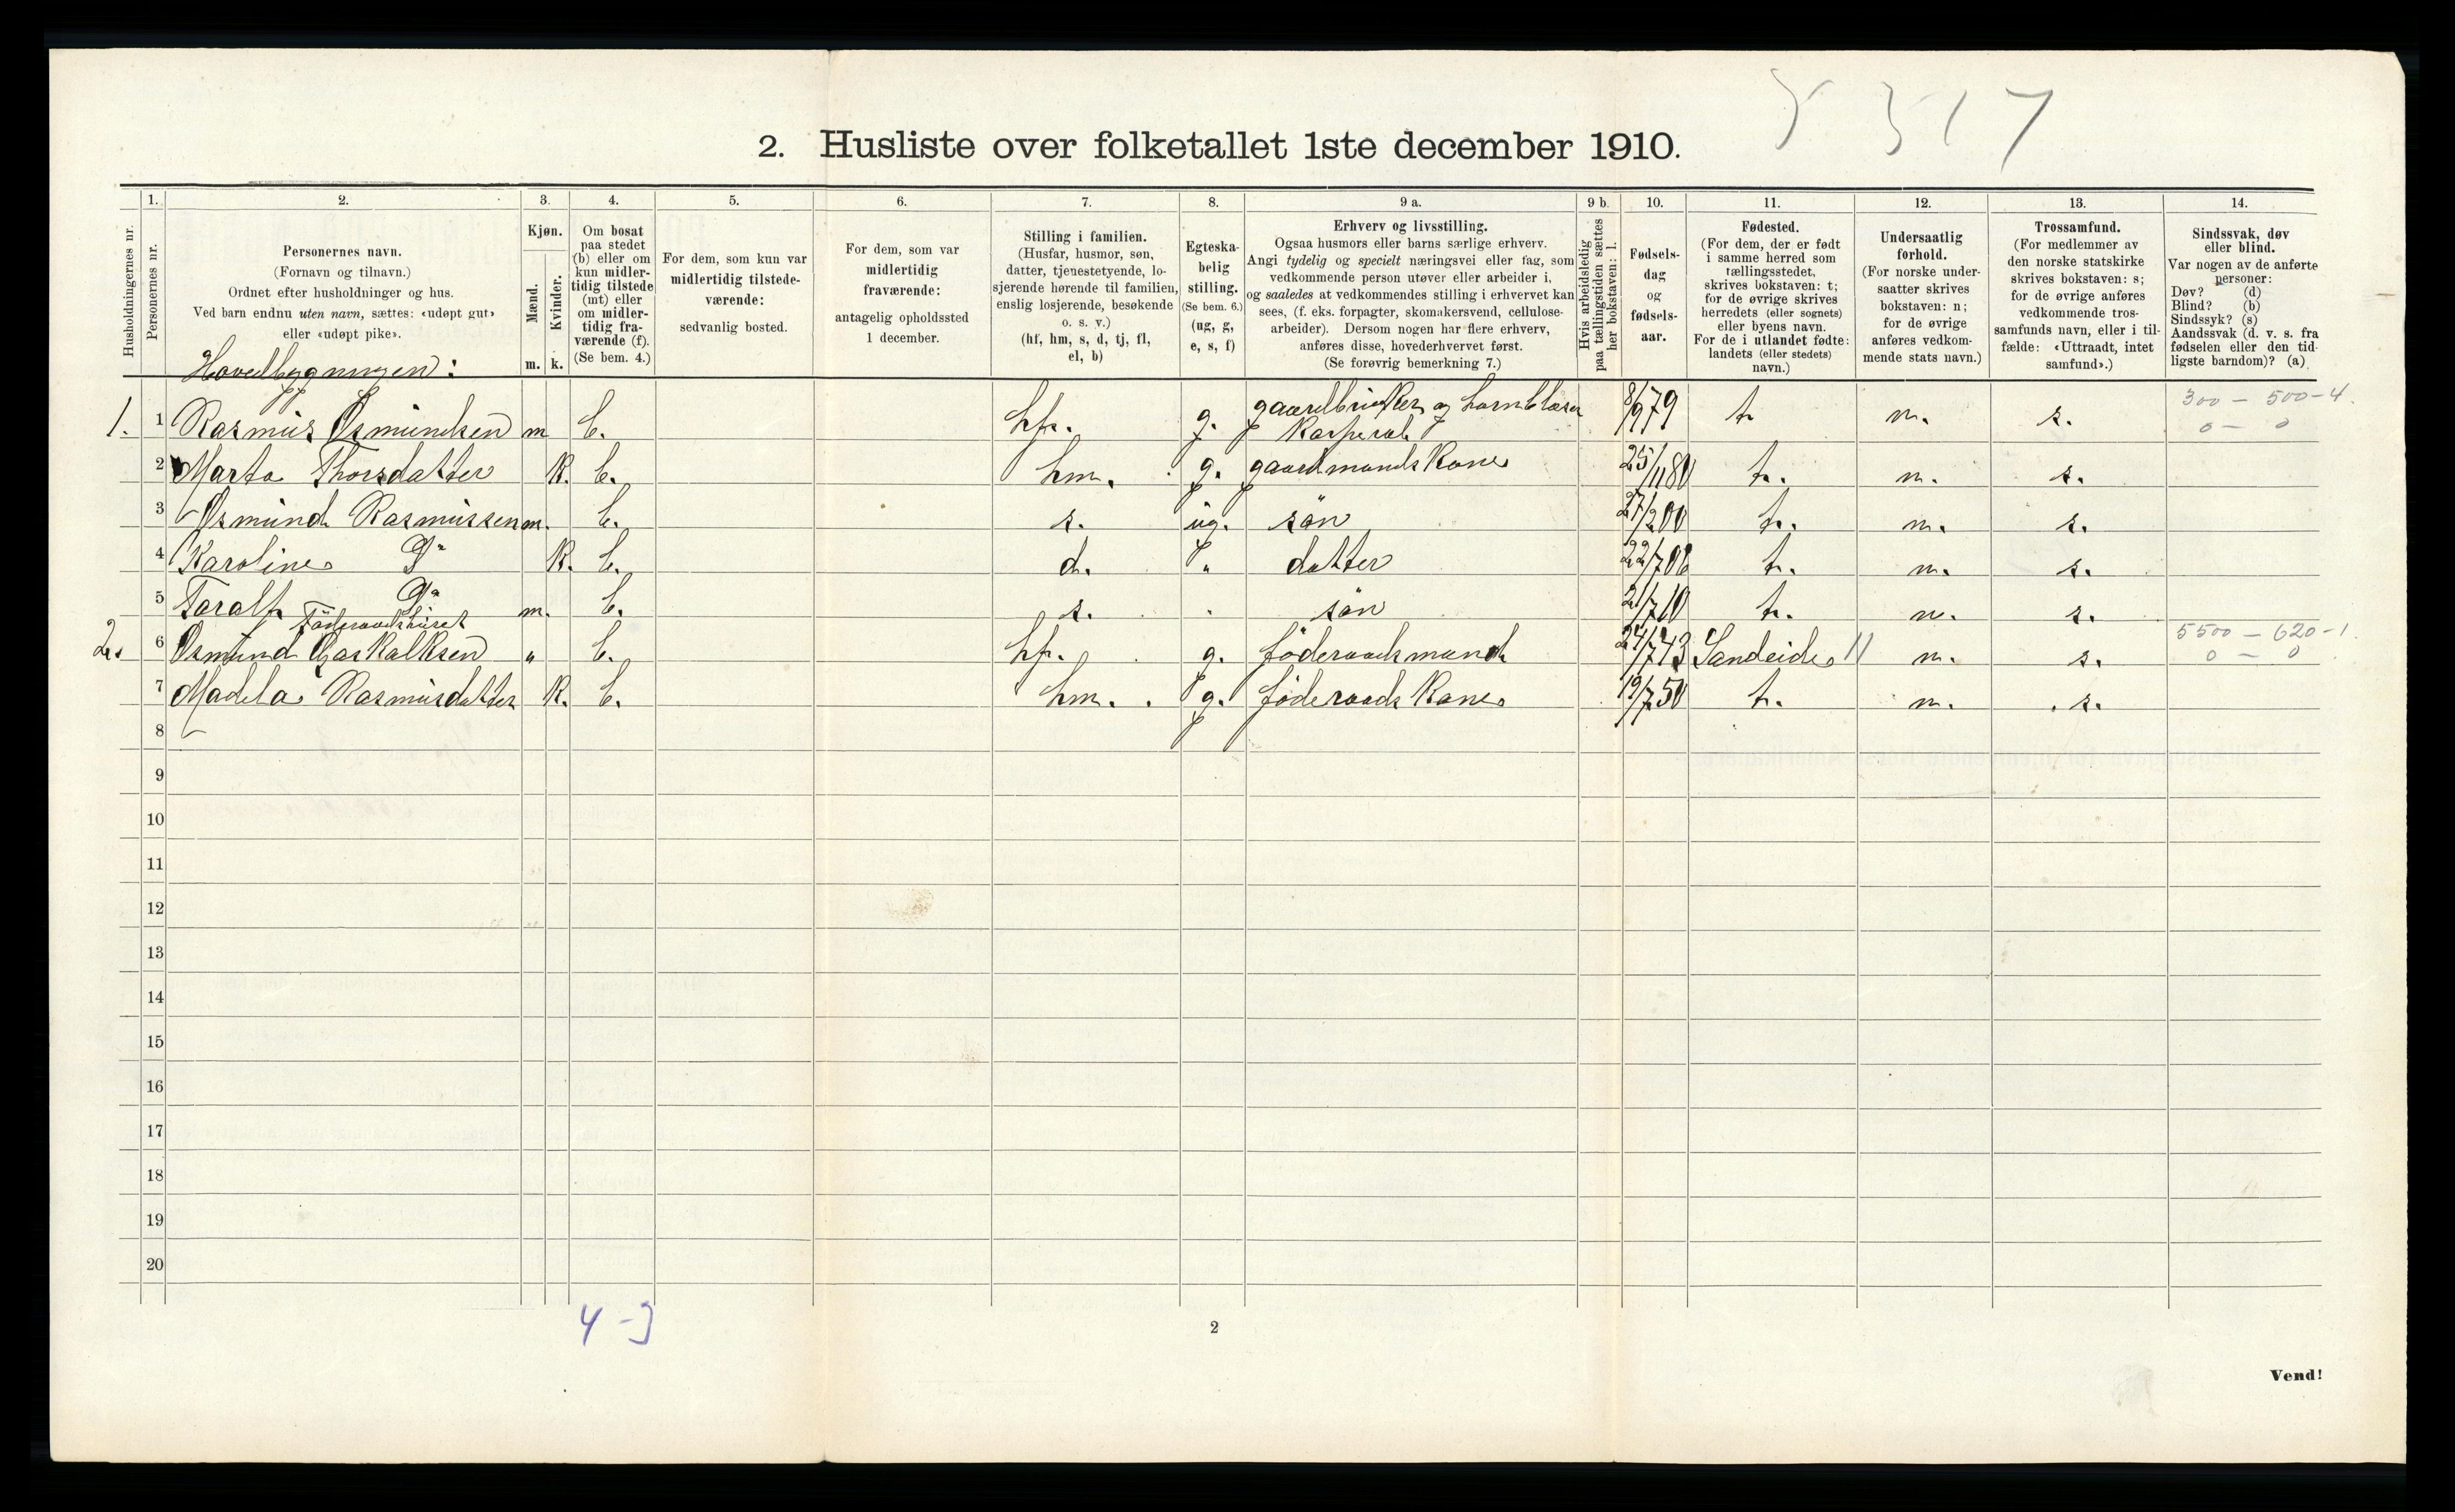 5 517
2. Husliste over folketallet 1ste december 1910.
1. 2. 3. 4. 5. 6. 7. 8. 9 a. 9 b. 10. 11. 12. 13. 14.
Husholdningernes nr.
Personernes nr.
Personernes navn.
(Fornavn og tilnavn.)
Ordnet efter husholdninger og hus.
Ved barn endnu uten navn, sættes: «udøpt gut»
eller «udøpt pike».
Kjøn.
Mænd.
Kvinder.
m. k.
Om bosat
paa stedet
(b) eller om
kun midler-
tidig tilstede
(mt) eller
om midler-
tidig fra-
værende (f).
(Se bem. 4.)
For dem, som kun var
midlertidig tilstede-
værende:
sedvanlig bosted.
For dem, som var
midlertidig
fraværende:
antagelig opholdssted
1 december.
Stilling i familien.
(Husfar, husmor, søn,
datter, tjenestetyende, lo-
sjerende hørende til familien,
enslig losjerende, besøkende
o. s. v.)
(hf, hm, s, d, tj, fl,
el, b)
Egteska-
belig
stilling.
(Se bem. 6.)
(ug, g,
e, s, f)
Erhverv og livsstilling.
Ogsaa husmors eller barns særlige erhverv.
Angi tydelig og specielt næringsvei eller fag, som
vedkommende person utøver eller arbeider i,
og saaledes at vedkommendes stilling i erhvervet kan
sees, (f. eks. forpagter, skomakersvend, cellulose-
arbeider). Dersom nogen har flere erhverv,
anføres disse, hovederhvervet først.
(Se forøvrig bemerkning 7.)
Hvis arbeidsledig
paa tællingstiden sættes
her bokstaven: l.
Fødsels-
dag
og
fødsels-
aar.
Fødested.
(For dem, der er født
i samme herred som
tællingsstedet,
skrives bokstaven: t;
for de øvrige skrives
herredets (eller sognets)
eller byens navn.
For de i utlandet fødte:
landets (eller stedets)
navn.)
Undersaatlig
forhold.
(For norske under-
saatter skrives
bokstaven: n;
for de øvrige
anføres vedkom-
mende stats navn.)
Trossamfund.
(For medlemmer av
den norske statskirke
skrives bokstaven: s;
for de øvrige anføres
vedkommende tros-
samfunds navn, eller i til-
fælde: «Uttraadt, intet
samfund».)
Sindssvak, døv
eller blind.
Var nogen av de anførte
personer:
Døv? (d)
Blind? (b)
Sindssyk? (s)
Aandssvak (d. v. s. fra
fødselen eller den tid-
ligste barndom)? (a)
Hovedbygningen:
1. 1 Rasmus Osmundsen m b. hf. g. gaardbruker og hornblæser 8/9 79 t n. s. 300 - 500-4.
Korperal 0 - 0
2 Marta Thorsdatter k. b. hm. g. gaardmands kone 25/11 80 t. n. s.
3 Osmund Rasmussen m. b. s. ug. søn 27/2 00 t. n. s.
4 Karoline Do k. b. d. " datter 22/7 08 t. n. s.
5 Toralf Do m. b. s. " søn 21/7 10 t. n. s.
Föderaadshuset
2. 6 Osmund Gaskalksen " b. hf. g. föderaadsmand 24/7 43 Sandeide 11 n. s. 5500 - 620-1.
0 - 0
7 Madela Rasmusdatter k. b. hm. g. föderaads kone 19/7 50 t. n. s.
8
9
10
11
12
13
14
15
16
17
18
19
20
4 - 3
2
Vend!